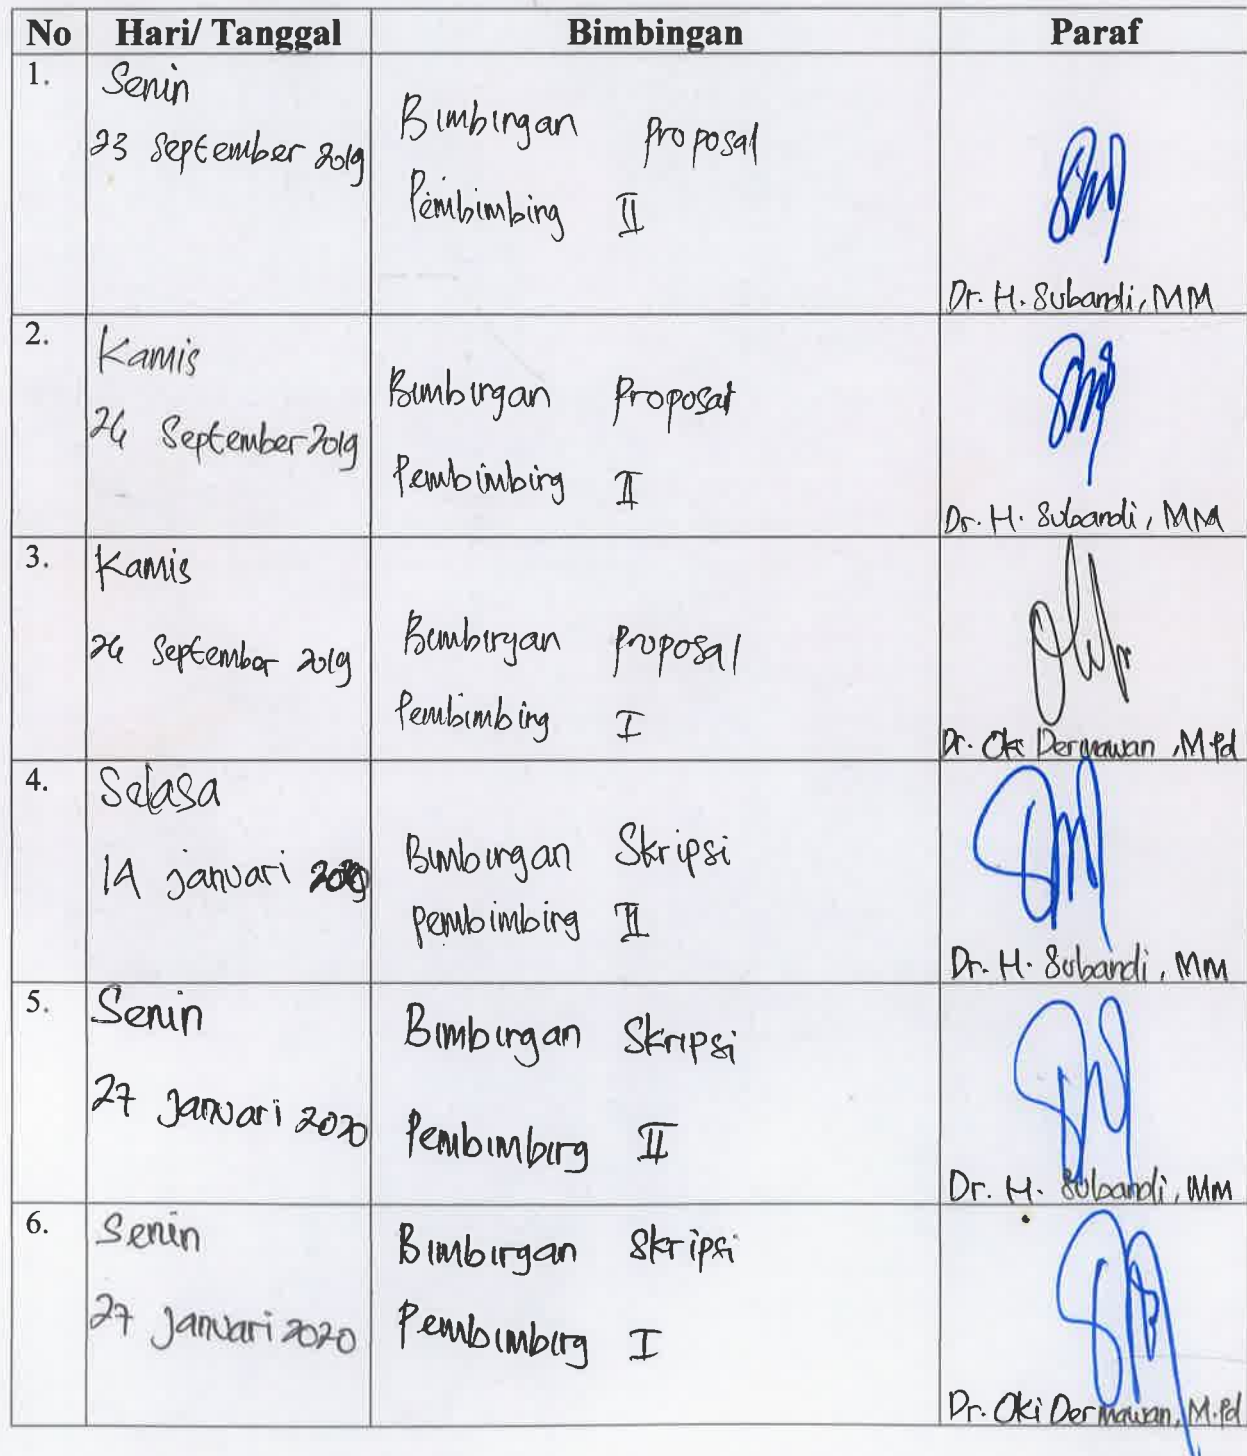 No Hari/ Tanggal Bimbingan Paraf
1. Senin
23 September 2019
Bimbingan Proposal
Pembimbing II
Dr. H. Subandi, MM
2. Kamis
26 September 2019
Bimbingan Proposal
Pembimbing II
Dr. H. Subandi, MM
3. Kamis
26 September 2019
Bimbingan Proposal
Pembimbing I
Dr. Oki Dermawan, M.Pd
4. Selasa
14 januari
Bimbingan Skripsi
pembimbing II
Dr. H. Subandi, MM
5. Senin
27 Januari 2020
Bimbingan Skripsi
Pembimbing II
Dr. H. Subandi, MM
6. Senin
27 Januari 2020
Bimbingan Skripsi
Pembimbing I
Dr. Oki Dermawan, M.Pd